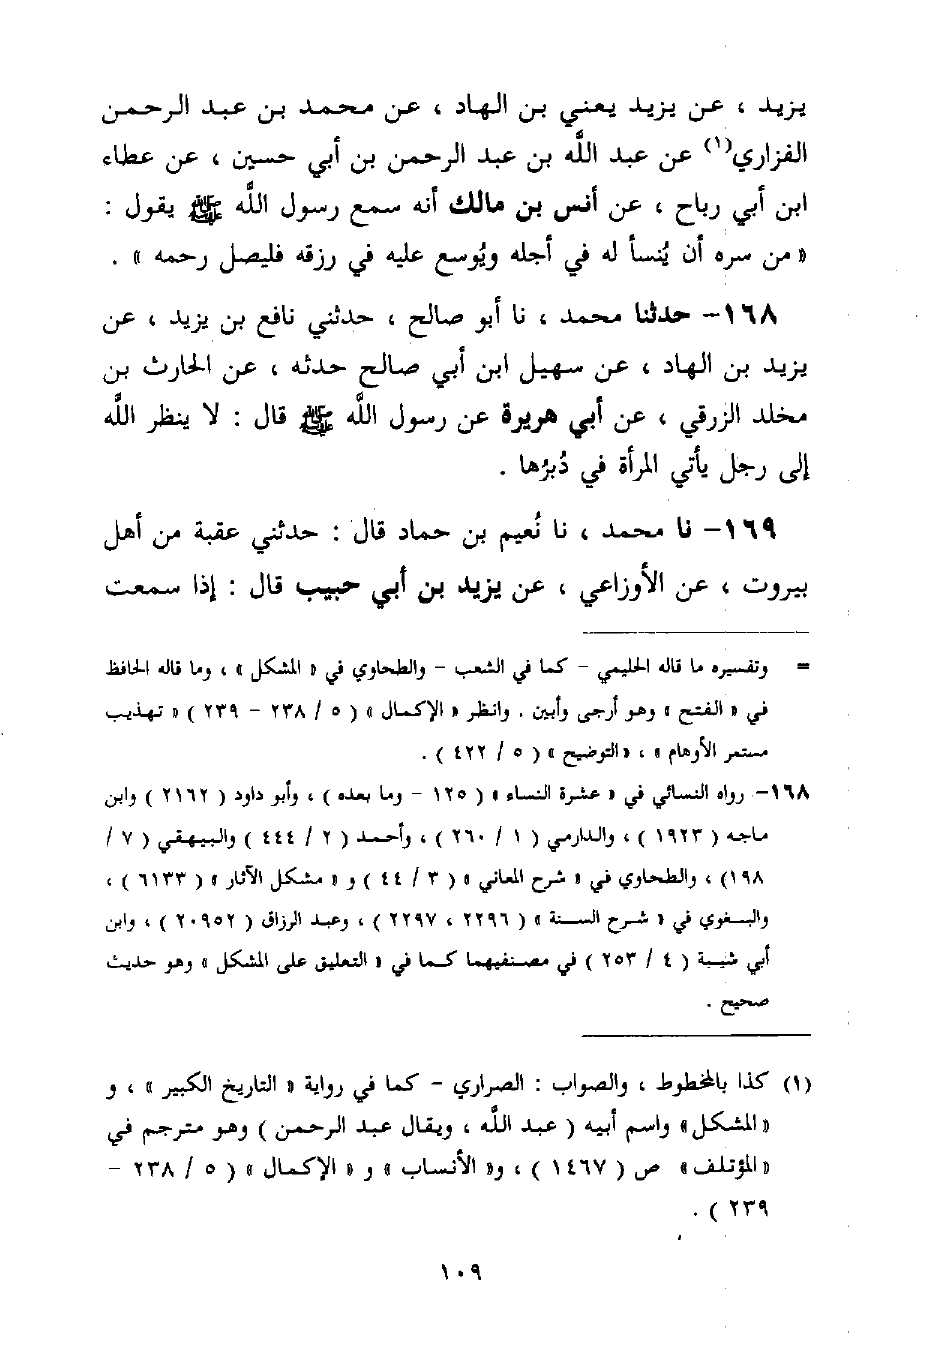 يزيد ، عن يزيد يعني بن الهاد ، عن محمد بن عبد الرحمن
الفزاري(١) عن عبد اللَّه بن عبد الرحمن بن أبي حسين ، عن عطاء
ابن أبي رباح ، عن أنس بن مالك أنه سمع رسول اللَّه ﷺ يقول :
« من سره أن يُنسأ له في أجله ويُوسع عليه في رزقه فليصل رحمه » .
١٦٨- حدثنا محمد ، نا أبو صالح ، حدثني نافع بن يزيد ، عن
يزيد بن الهاد ، عن سهيل ابن أبي صالح حدثه ، عن الحارث بن
مخلد الزرقي ، عن أبي هريرة عن رسول اللَّه ﷺ قال : لا ينظر اللَّه
إلى رجل يأتي المرأة في دُبرُها .
١٦٩- نا محمد ، نا نُعيم بن حماد قال : حدثني عقبة من أهل
بيروت ، عن الأوزاعي ، عن يزيد بن أبي حبيب قال : إذا سمعت
= وتفسيره ما قاله الحليمي - كما في الشعب - والطحاوي في « المشكل » ، وما قاله الحافظ
في « الفتح » وهو أرجى وأبين . وانظر « الإكمال » ( ٥ / ٢٣٨ - ٢٣٩ ) « تهذيب
مستمر الأوهام » ، « التوضيح » ( ٥ / ٤٢٢ ) .
١٦٨- رواه النسائي في « عشرة النساء » ( ١٢٥ - وما بعده ) ، وأبو داود ( ٢١٦٢ ) وابن
ماجه ( ١٩٢٣ ) ، والدارمي ( ١ / ٢٦٠ ) ، وأحمد ( ٢ / ٤٤٤ ) والبيهقي ( ٧ /
١٩٨) ، والطحاوي في « شرح المعاني » ( ٣ / ٤٤ ) و « مشكل الآثار » ( ٦١٣٣ ) ،
والبغوي في « شرح السنة » ( ٢٢٩٦ ، ٢٢٩٧ ) ، وعبد الرزاق ( ٢٠٩٥٢ ) ، وابن
أبي شيبة ( ٤ / ٢٥٣ ) في مصنفيهما كما في « التعليق على المشكل » وهو حديث
صحيح .
(١) كذا بالمخطوط ، والصواب : الصراري - كما في رواية « التاريخ الكبير » ، و
« المشكل » واسم أبيه ( عبد اللَّه ، ويقال عبد الرحمن ) وهو مترجم في
« المؤتلف » ص ( ١٤٦٧ ) ، و« الأنساب » و « الإكمال » ( ٥ / ٢٣٨ -
٢٣٩ ) .
١٠٩